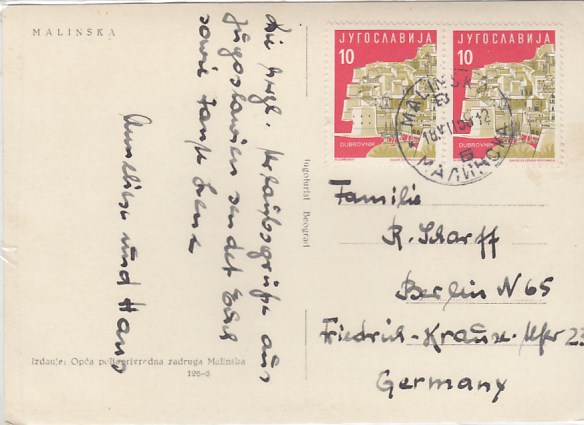 MALINSKA
Die hrzl. Urlaubsgrüße aus
Jugoslawien sendet Euch
sowie Tante Lene
Anneliese und Hans
Izdanje: Opća poljoprivredna zadruga Malinska
Jugoturist Beograd
ЈУГОСЛАВИЈА
10
DUBROVNIK
ЈУГОСЛАВИЈА
10
DUBROVNIK
MALINSKA
МАЛИНСКА
Familie
R. Scharff
Berlin N 65
Friedrich-Krause-Ufer 23
Germany